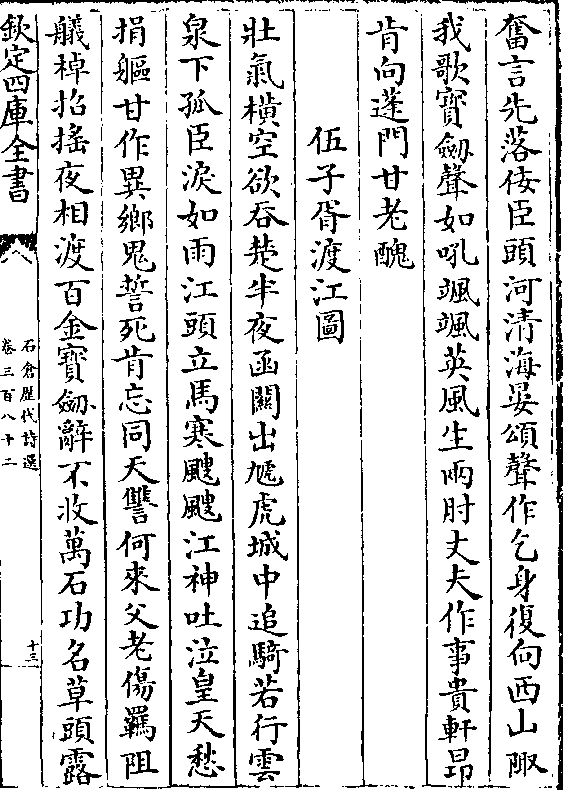 奮言先落佞臣頭河清海晏頌聲作乞身復向西山陬
我歌寳劒聲如吼颯颯英風生兩肘丈夫作事貴軒昂
肯向蓬門甘老醜
伍子胥渡江圖
壮氣横空欲吞楚半夜函關出虓虎城中追騎若行雲
泉下孤臣淚如雨江頭立馬寒颼颼江神吐泣皇天愁
捐軀甘作異鄉鬼誓死肯忘同天讐何來父老傷羈阻
艤棹招揺夜相渡百金寳劒辭不收萬石功名草頭露
欽定四庫全書
石倉歴代詩選
卷三百八十二
十三